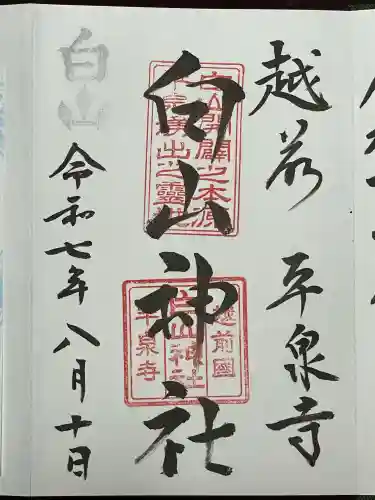 越前 平泉寺
白山神社
白山開闢之本源
平泉湧出之靈地
越前國
白山神社
平泉寺
白山
令和七年八月十日